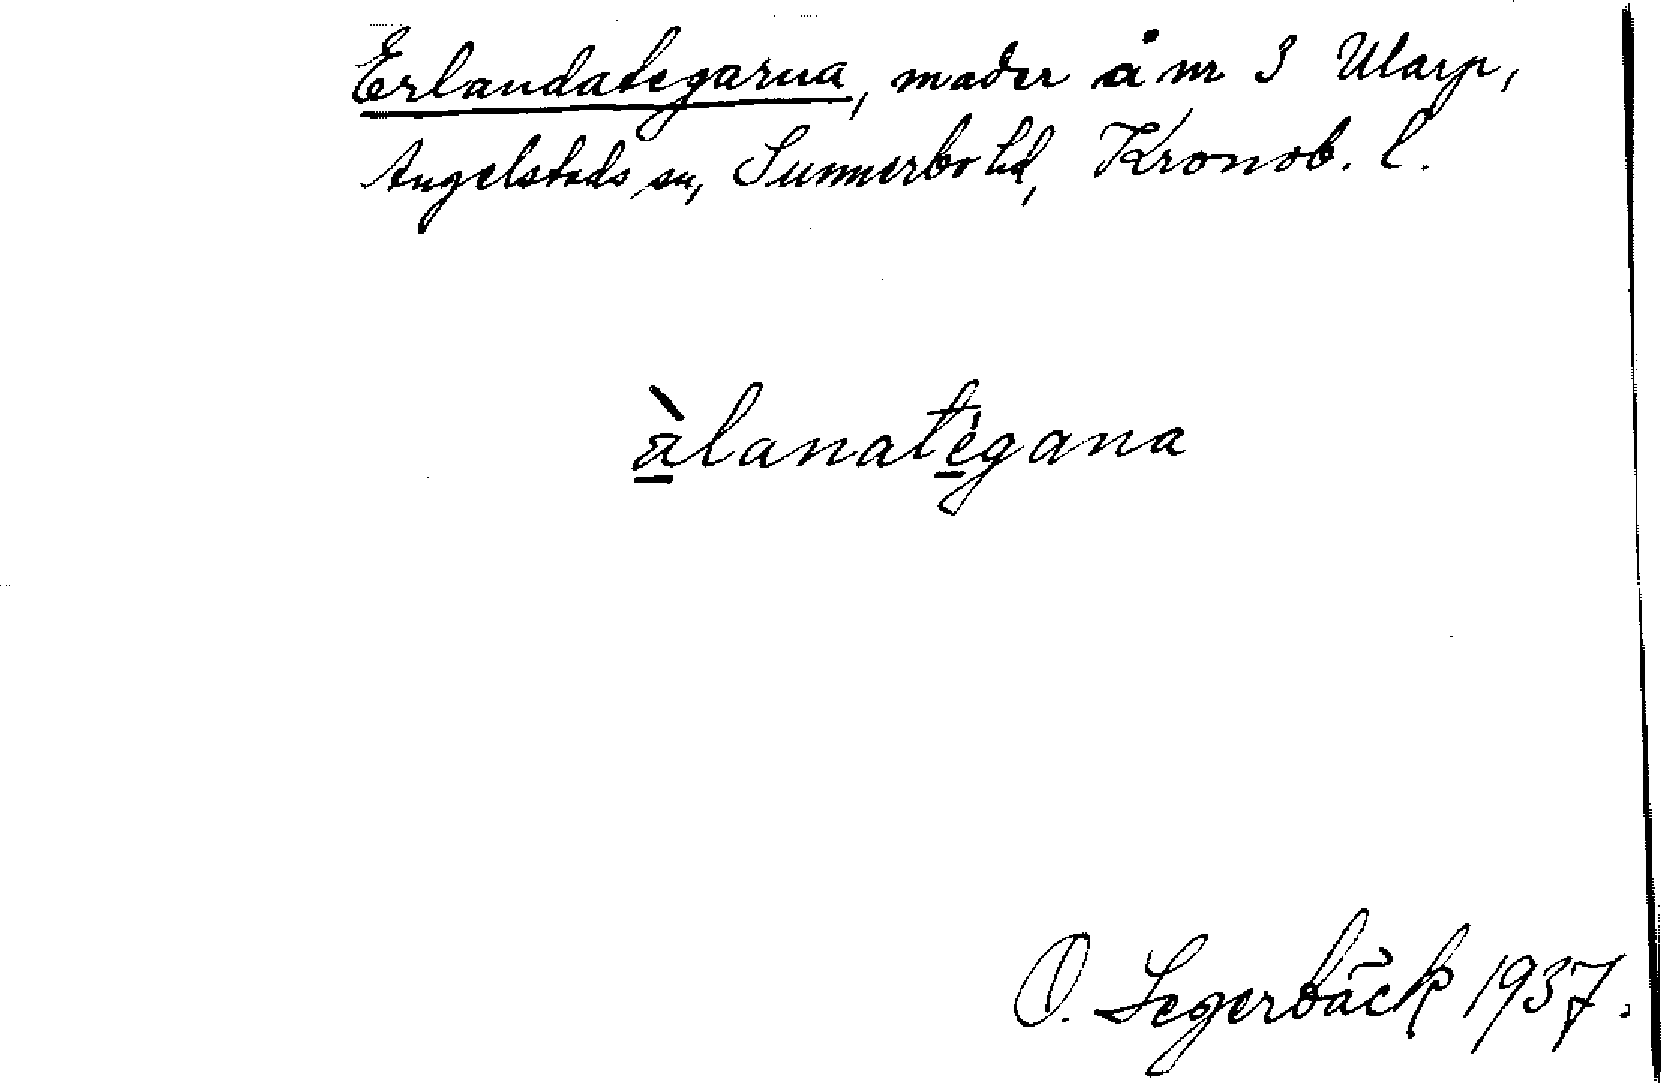 Erlandategarna, mader å nr 3 Ularp,
Angelstads sn, Sunnerbo hd, Kronob. l.
àlanatègana
O. Segerbäck 1937.